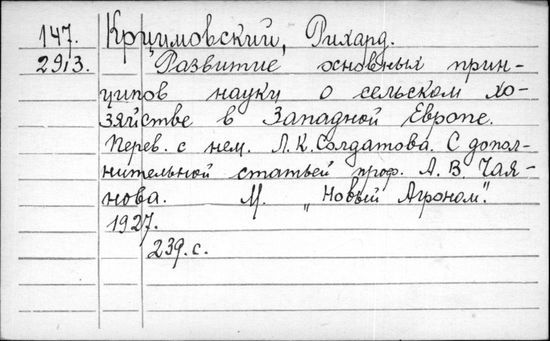 147. Крцимовский, Рихард.
2913. Развитие основных прин-
ципов науки о сельском хо-
зяйстве в Западной Европе.
Перев. с нем. Л. К. Солдатова. С допол-
нительной статьей проф. А. В. Чая-
нова. М. „Новый Агроном".
1927.
239. с.